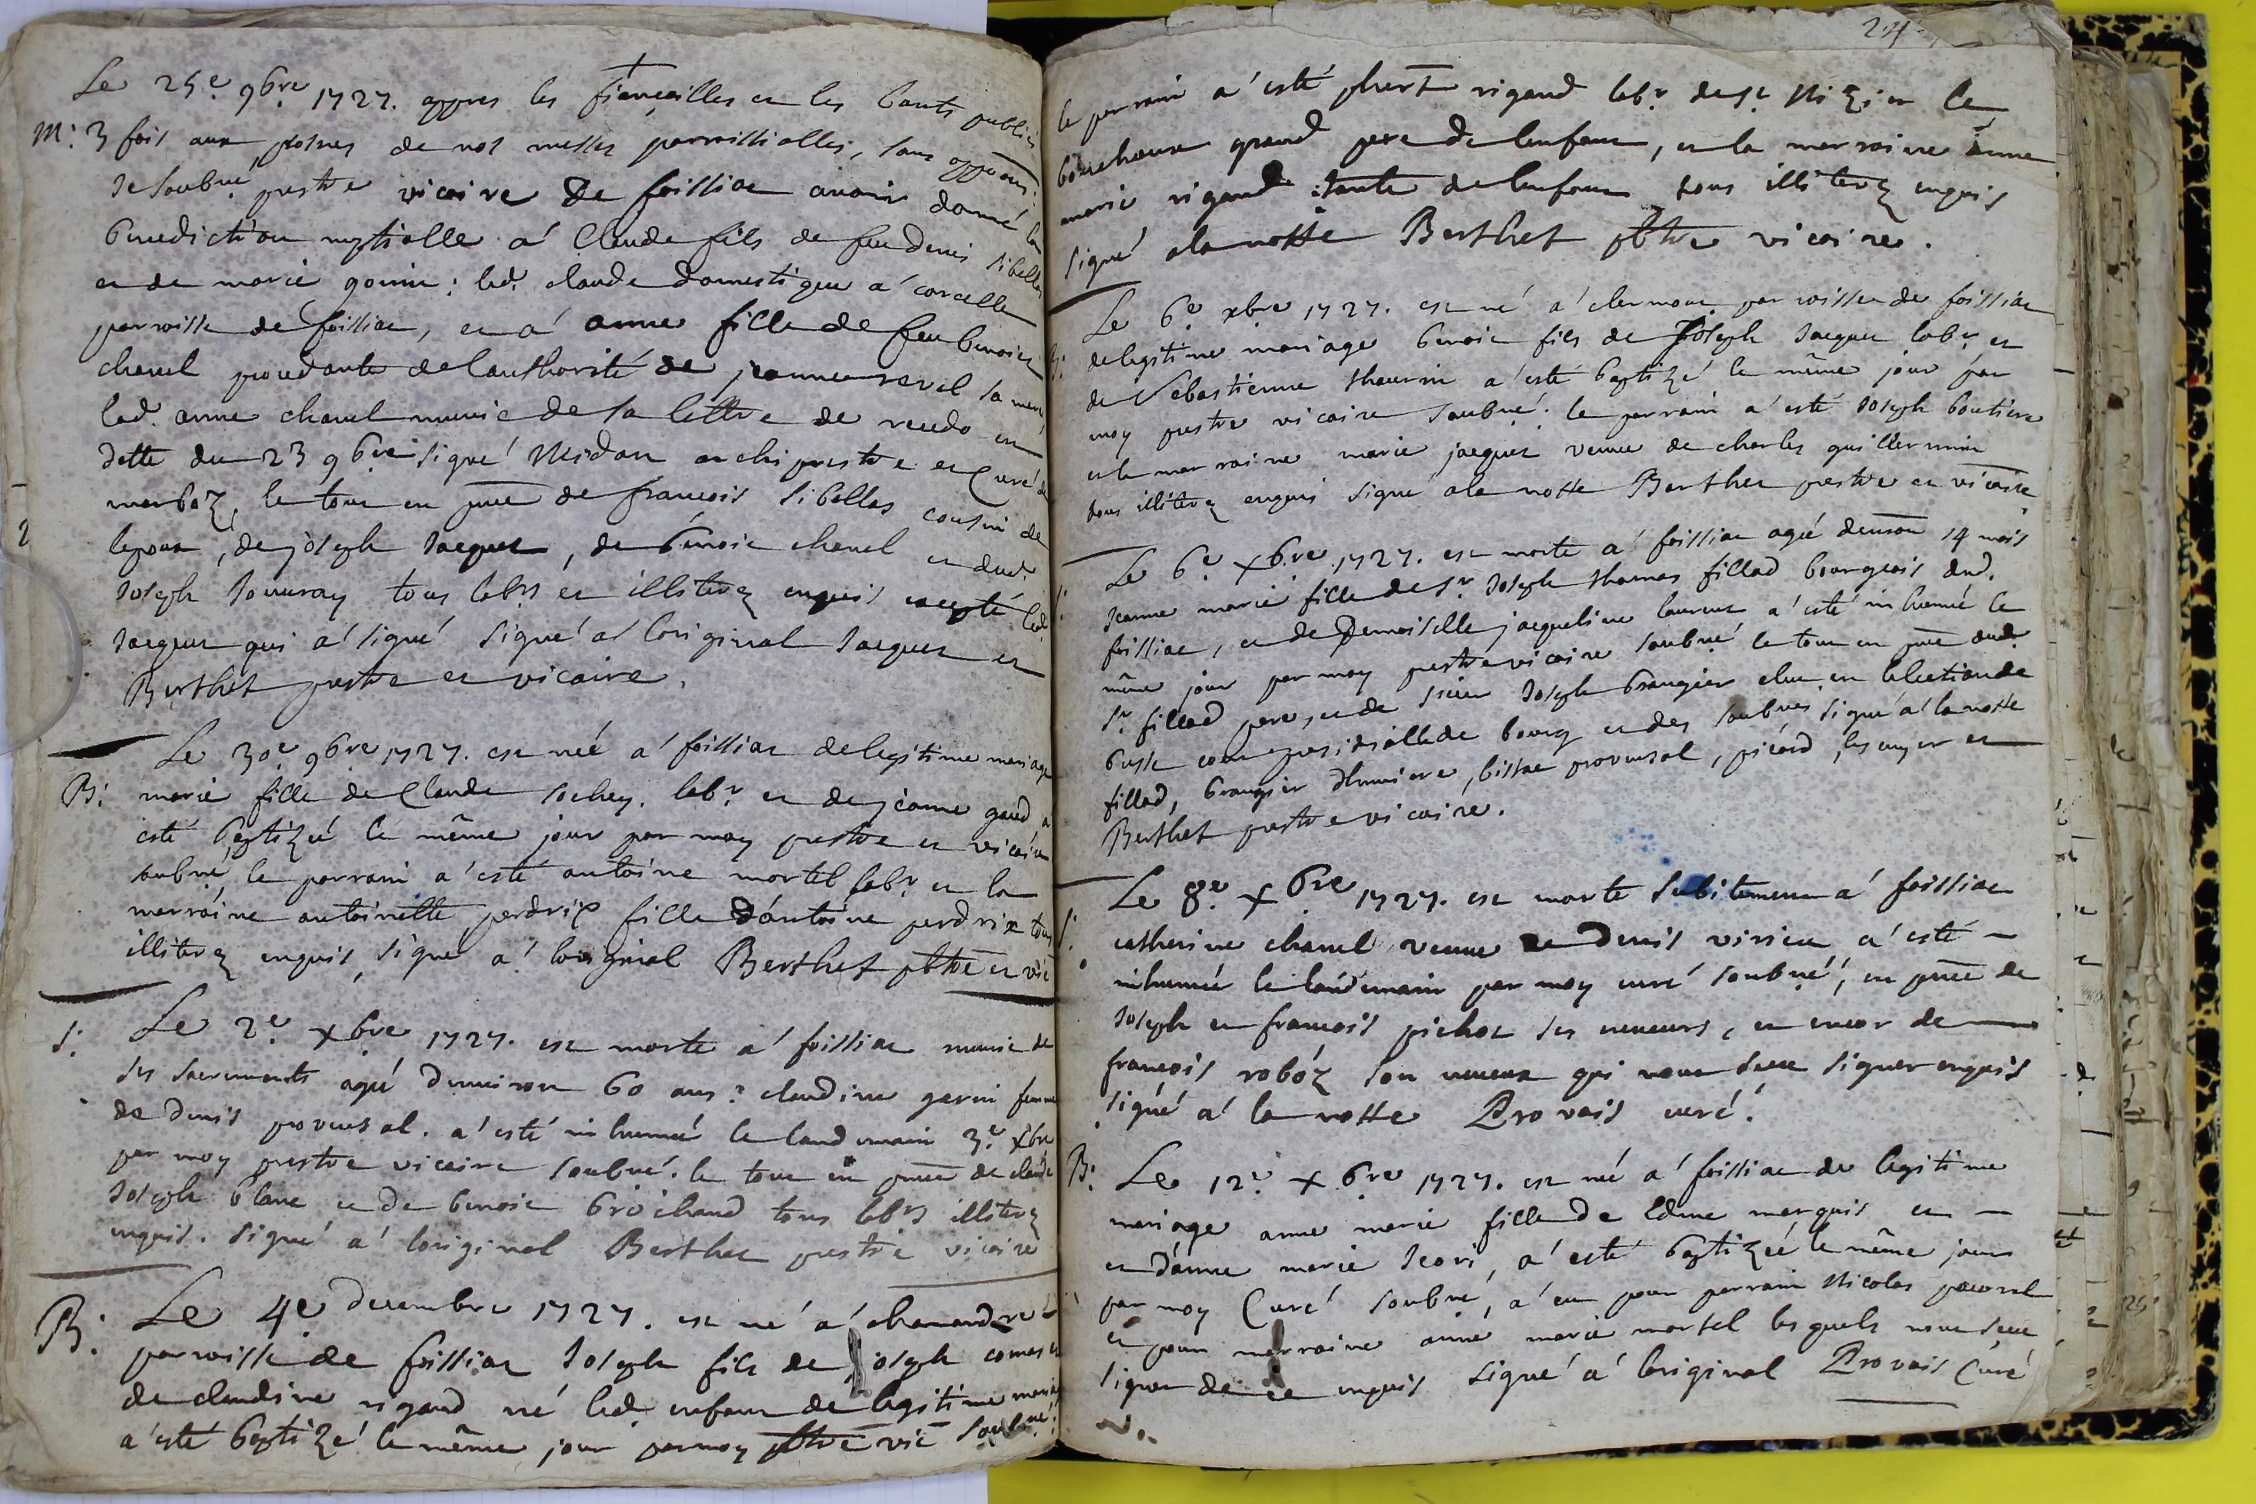 Le 25e. 9bre. 1727. appres les fiançailles et les bants publiés
M: 3 fois aux prosnes de nos messes parroissialles, sans opp͞on.
Je soubné. prestre vicaire de foissiac avoir donné la
benediction nuptialle a' Claude fils de feu denis sibellas
et de marie gonin: led. claude domestique a' corcelle
parroisse de foissiac, et a' anne fille de feu benoict
chanel procedante de lauthorité de jeanne revel sa mere
lad. anne chanel munie de sa lettre de recedo en
datte du 23 9bre signé Midan archiprestre et Curé de
marboz, le tout en p͞nce de francois sibellas cousin de
lepoux, de joseph Jacquet, de benoit chanel et dud.
Joseph tous labrs et illiterez enquis excepté led.
Jacquet qui a' signé signé a' loriginal Jacquet et
Berthet prestre et vicaire.
Le 30e. 9bre 1727. est née a' foissiac de legitime mariage
B: marie fille de Claude sochey labr. et de jeanne gaud a
esté baptizée le même jour par moy prestre et vicaire
soubné, le parrain a' esté antoine mortel labr. et la
marraine antoinette perdrix fille d'antoine perdrix tous
illiterez enquis, signé a' loriginal Berthet p͞btre et vic͞
S. Le 2e. xbre 1727. est morte a' foissiac munie de
ses sacrements agée denviron 60 ans: claudine garin femme
de denis provensal. a' esté inhumée le landemain 3e. xbre
par moy prestre vicaire soubné. le tout en p͞nce de claude
Joseph blanc et de benoit brochand tous labrs illiterez
enquis. signé a' loriginal Berthet prestre vicaire
B: Le 4e decembre 1727. est né a' chamandre
parroisse de foissiac Joseph fils de joseph comas et
de claudine rigaud né led. enfant de legitime mariage
a' esté baptizé le même jour par moy p͞btre vic͞ soubné.
24
le parrain a' esté phert rigaud labr. de st. Nizier le
bouchoux grand pere de lenfant, et la marraine anne
marie rigaud tante de lenfant tous illiterez enquis
signé a la notte Berthet p͞btre vicaire.
Le 6e. xbre 1727. est né a' clermont parroisse de foissiac
B: de legitime mariage benoit fils de Joseph Jacquet labr. et
de Sebastienne thaurin a' esté baptizé le même jour par
moy prestre vicaire soubné. le parrain a' esté Joseph boutiere
et la marraine marie jacquet veuve de charles guillermin
tous illiterez enquis signé a la notte Berthet prestre et vicaire
S: Le 6e. xbre 1727. est morte a' foissiac agée denviron 14 mois
Jeanne marie fille de sr. Joseph thomas fillod bourgeois dud.
foissiac, et de Demoiselle jacqueline laurent a' esté inhumée le
même jour par moy prestre vicaire soubné le tout en p͞nce dud.
sr. fillod pere, et de sieur Joseph brangier elu en lelection de
presidialle de bourg et des soubnes signé a' la notte
fillod, brangier dhumiere, bissac provensal, picard, et
Berthet prestre vicaire.
S. Le 8e. xbre 1727. est morte subitement a' foissiac
catherine chanel veuve de denis virieu a' esté
inhumée le landemain par moy curé soubné, en p͞nce de
Joseph et francois pichot ses neveurs, et encor de
francois roboz son neveux qui nont sceu signer enquis
signé a' la notte Provais curé.
B: Le 12e. xbre 1727. est né a' foissiac de legitime
mariage anne marie fille de Edme marquis et
et d'anne marie Jeori, a' esté baptizée le même jour
par moy Curé soubné, a' eu pour parrain Nicolas pauvrel
et pour marraine anne marie mortel lesquels nont sceu
signer de ce enquis signé a' loriginal Provais Curé